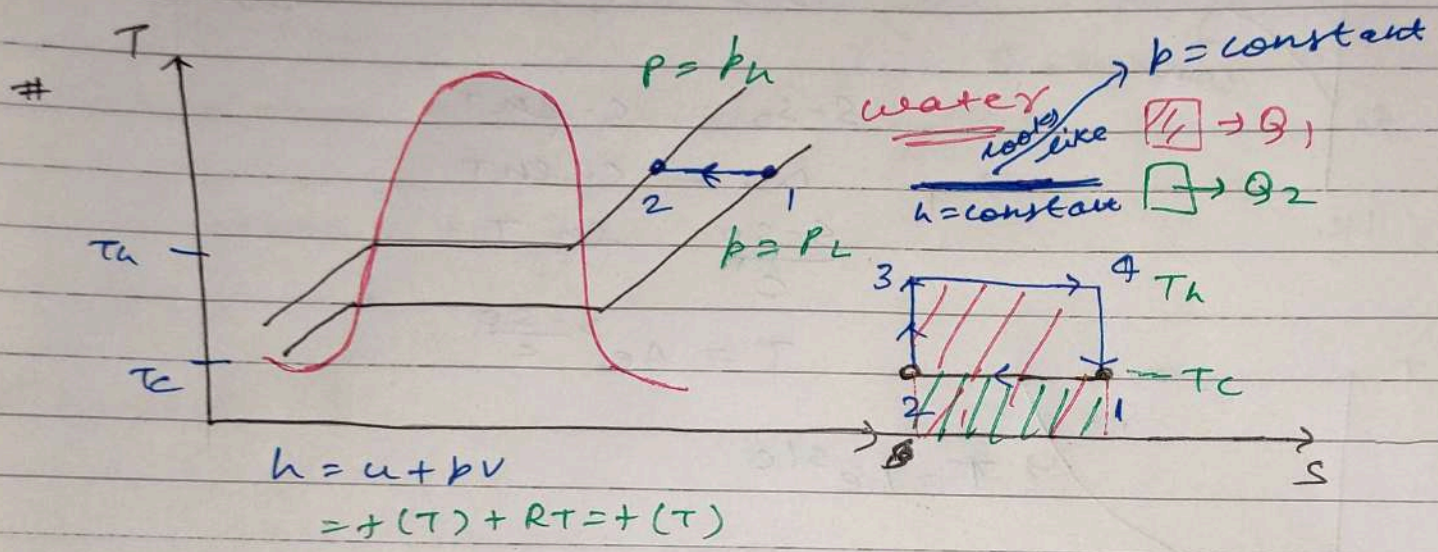 #
T
p = ph
p = constant
water
looks like
→ Q1
h = constant
→ Q2
2
1
p = PL
Th
3
4
Th
Tc
Tc
2
1
s
S
h = u + pv
= f(T) + RT = f(T)